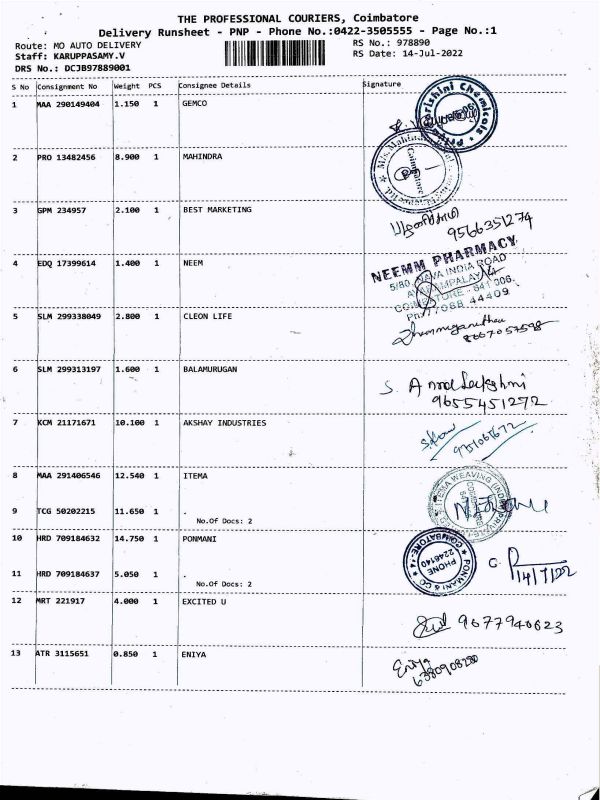 THE PROFESSIONAL COURIERS, Coimbatore
Delivery Runsheet - PNP - Phone No.:0422-3505555 - Page No.:1
Route: MO AUTO DELIVERY
RS No.: 978890
Staff: KARUPPASAMY.V
RS Date: 14-Jul-2022
DRS No.: DCJB97889001
S No Consignment No Weight PCS Consignee Details Signature
1 MAA 290149404 1.150 1 GEMCO
2 PRO 13482456 8.900 1 MAHINDRA
Coimbatore
3 GPM 234957 2.100 1 BEST MARKETING
9566351274
4 EDQ 17399614 1.400 1 NEEM
NEEMM PHARMACY
5 SLM 299338049 2.800 1 CLEON LIFE
8667057598
6 SLM 299313197 1.600 1 BALAMURUGAN
9655451272
7 KCM 21171671 10.100 1 AKSHAY INDUSTRIES
8 MAA 291406546 12.540 1 ITEMA
9 TCG 50202215 11.650 1 .
No.Of Docs: 2
10 HRD 709184632 14.750 1 PONMANI
PONMANI & CO
PHONE
2246140
COIMBATORE
14/7/22
11 HRD 709184637 5.050 1 .
No.Of Docs: 2
12 MRT 221917 4.000 1 EXCITED U
9677940623
13 ATR 3115651 0.850 1 ENIYA
Eniya
6380908280